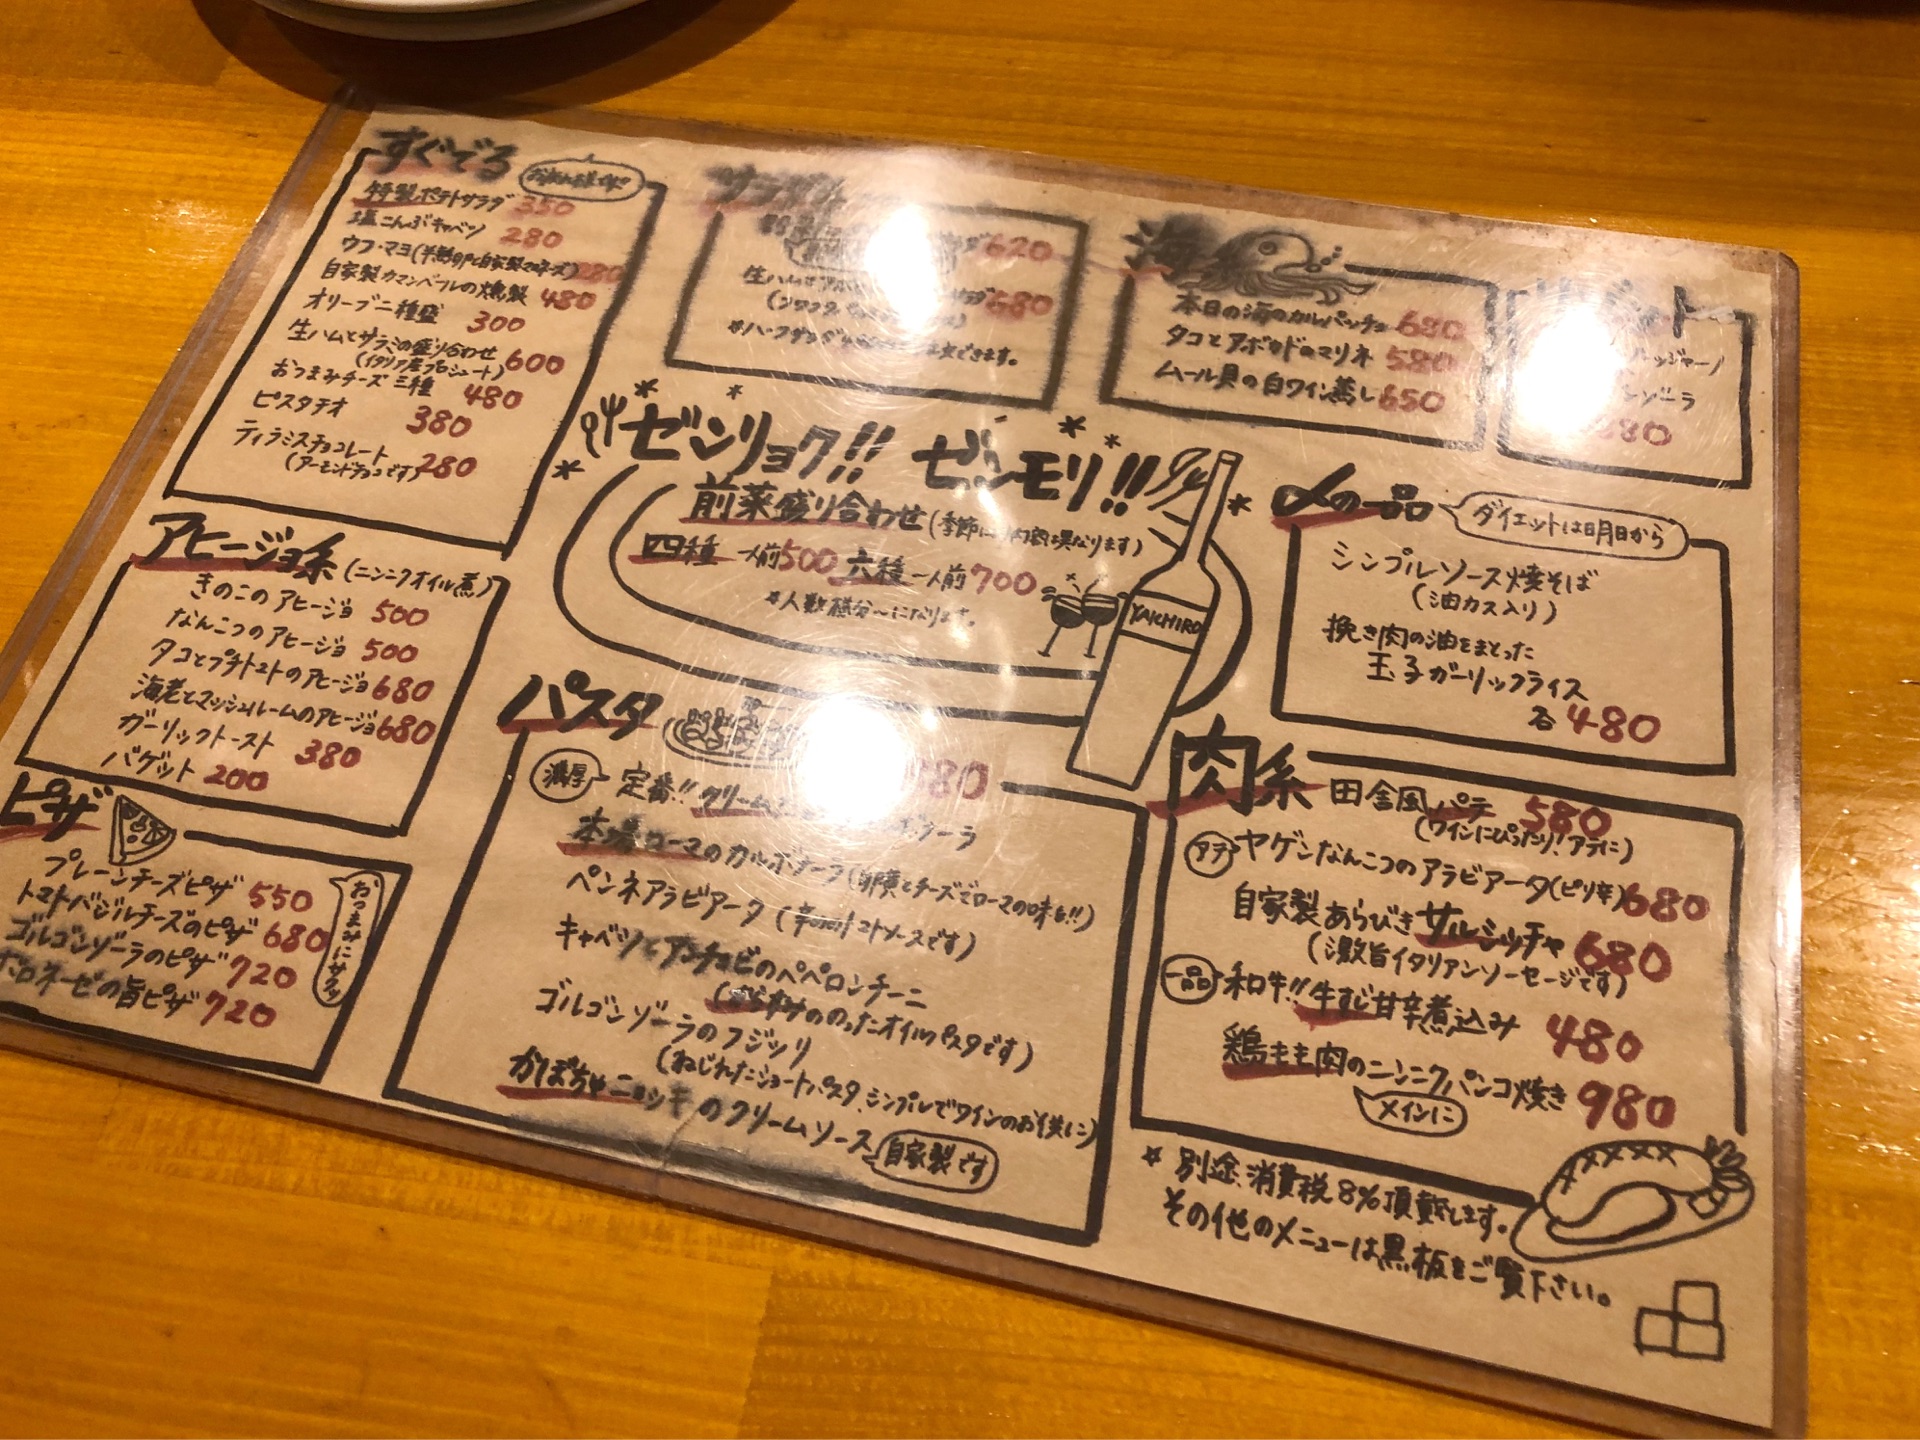 すぐでる
特製ポテトサラダ 350
塩こんぶキャベツ 280
ウフ・マヨ(半熟卵と自家製マヨネーズ) 280
自家製カマンベールの燻製 480
オリーブ二種盛 300
生ハムとサラミの盛り合わせ 600
(イタリア産プロシュート)
おつまみチーズ三種 480
ピスタチオ 380
ティラミスチョコレート 280
(アーモンドチョコです)
620
生ハムと 680
海
本日の海のカルパッチョ 680
タコとアボカドのマリネ 580
ムール貝の白ワイン蒸し 650
ゼンリョク!! ゼンモリ!!
前菜盛り合わせ(季節により内容異なります)
四種 一人前500 六種 一人前700
*人数様分〜になります。
YAICHIRO
〆の一品
ダイエットは明日から
シンプルソース焼そば
(油カス入り)
挽き肉の油をまとった
玉子ガーリックライス
各480
アヒージョ系(ニンニクオイル煮)
きのこのアヒージョ 500
なんこつのアヒージョ 500
タコとプチトマトのアヒージョ 680
海老とマッシュルームのアヒージョ 680
ガーリックトースト 380
バゲット 200
ピザ
プレーンチーズピザ 550
トマトバジルチーズのピザ 680
ゴルゴンゾーラのピザ 720
ボロネーゼの旨ピザ 720
おつまみにサクッ
パスタ
80
濃厚 定番!!クリーム ボナーラ
本場ローマのカルボナーラ(卵黄とチーズでローマの味も!!)
ペンネアラビアータ(辛めのトマトソースです)
キャベツとアンチョビのペペロンチーニ
(からすみののったオイルパスタです)
ゴルゴンゾーラのフジッリ
(ねじれたショートパスタ、シンプルでワインのお供に)
かぼちゃニョッキのクリームソース 自家製です
肉系
田舎風パテ 580
(ワインにぴったり!アテに)
アテ ヤゲンなんこつのアラビアータ(ピリ辛) 680
自家製あらびきサルシッチャ 680
(激旨イタリアンソーセージです)
一品 和牛!!牛すじ甘辛煮込み 480
鶏もも肉のニンニクパンコ焼き 980
メインに
☆別途、消費税8%頂戴します。
その他のメニューは黒板をご覧下さい。